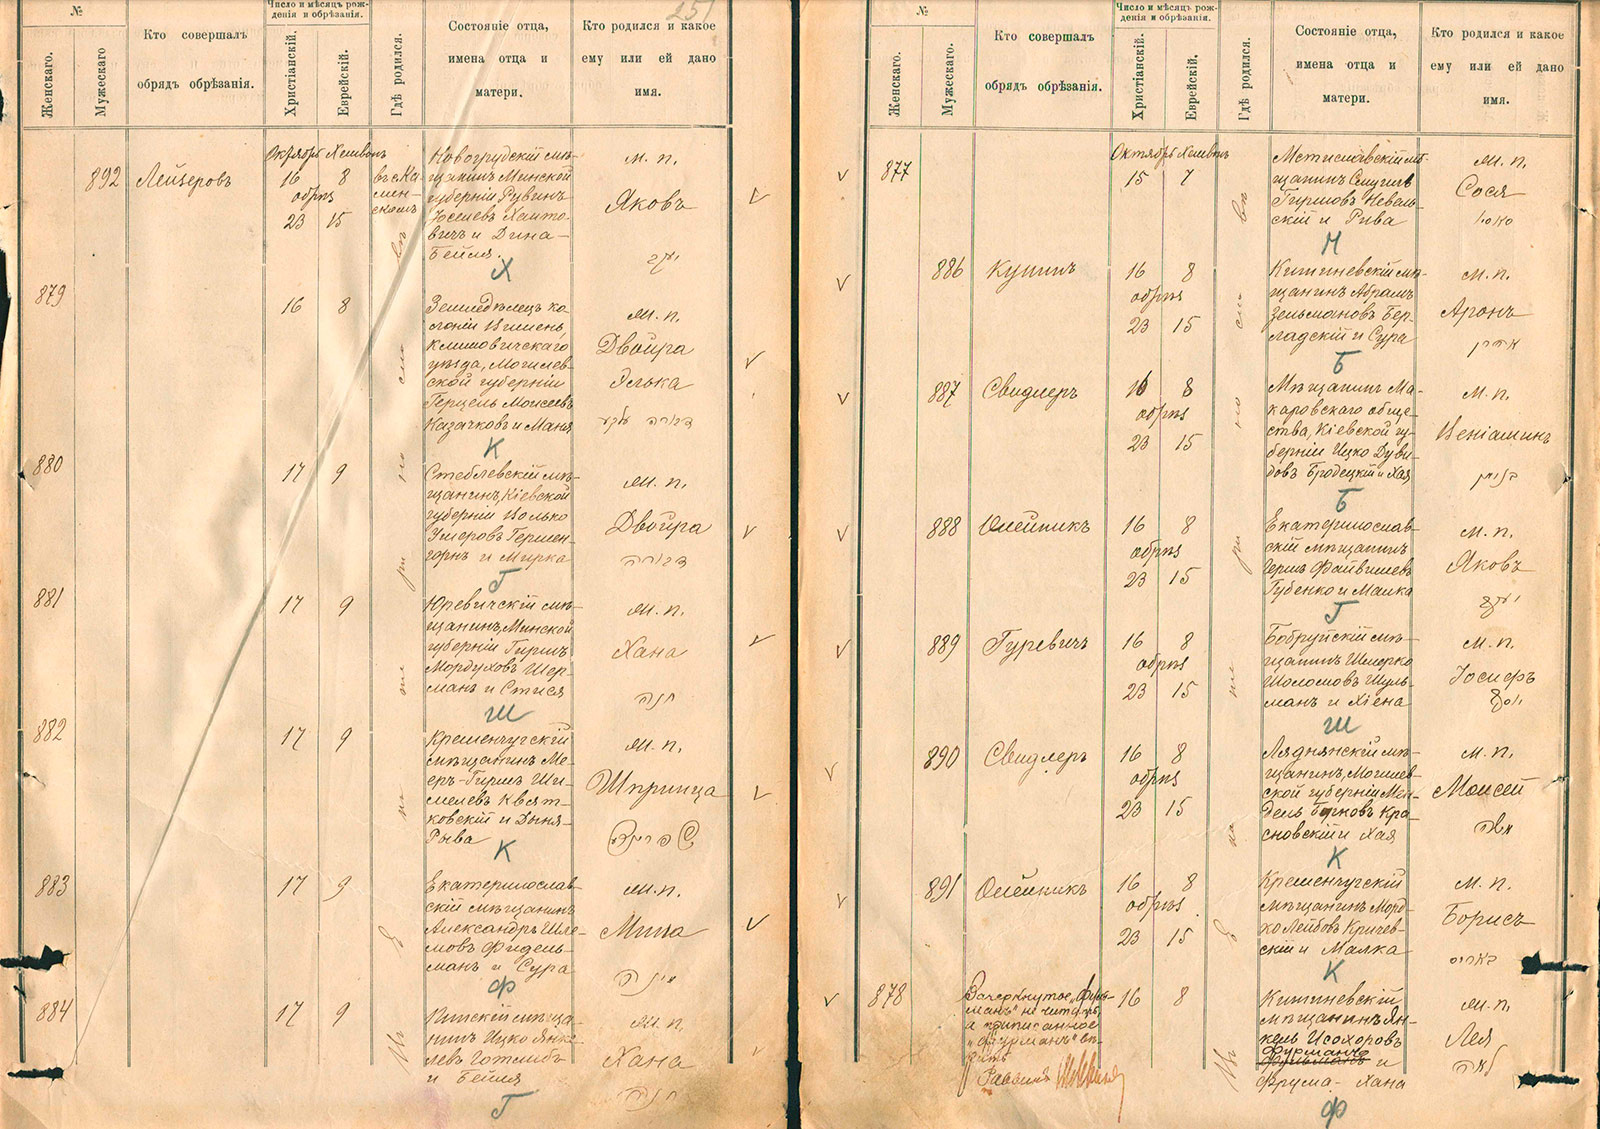 №
Женскаго.
Мужескаго
Кто совершалъ
обрядъ обрѣзанія.
Число и мѣсяцъ рож-
денія и обрѣзанія.
Христіанскій.
Еврейскій.
Гдѣ родился.
Состояніе отца,
имена отца и
матери.
Кто родился и какое
ему или ей дано
имя.
251
892
Лейзеровъ
Октябрь Хешвонъ
16 8
обрѣз
23 15
въ с. Ка-
мен-
скомъ
Новогрудскій мѣ-
щанинъ Минской
губерніи Рувинъ
Іосіевъ
вичъ и Дина-
Бейля.
Х
м. п.
Яковъ
יעקב
879
16 8
Земледѣлецъ ко-
лоніи
Климовичскаго
уѣзда, Могилев-
ской губерніи
Герцель Моисеевъ
Казачковъ и Маня
К
м. п.
Двойра
Элька
דבורה עלקע
880
17 9
Стеблевскій мѣ-
щанинъ, Кіевской
губерніи Волько
и Мирка
Г
м. п.
Двойра
דבורה
881
17 9
Юревичскій мѣ-
щанинъ, Минской
губерніи Гиршъ
Мордуховъ Шер-
манъ и Стися
Ш
м. п.
Хана
חנה
882
17 9
Кременчугскій
мѣщанинъ Ме-
еръ-Гиршъ Ши-
мелевъ Квят-
ковскій и Дыня-
Рыва
К
м. п.
Шпринца
שפרינצה
883
17 9
Екатеринослав-
скій мѣщанинъ
Александръ Шле-
мовъ Фидель-
манъ и Сура
Ф
м. п.
Мина
מינה
884
17 9
Пинскій мѣща-
нинъ Ицко Янке-
левъ Готлибъ
и Бейля
Г
м. п.
Хана
חנה
№
Женскаго.
Мужескаго.
Кто совершалъ
обрядъ обрѣзанія.
Число и мѣсяцъ рож-
денія и обрѣзанія.
Христіанскій.
Еврейскій.
Гдѣ родился.
Состояніе отца,
имена отца и
матери.
Кто родился и какое
ему или ей дано
имя.
877
Октябрь Хешвонъ
15 7
Мстиславскій мѣ-
щанинъ
Гиршовъ Неваль-
скій и Рива
Н
м. п.
Сося
סאסי
886
Купинъ
16 8
обрѣз
23 15
Кишиневскій мѣ-
щанинъ Абрамъ
Зельмановъ Бер-
ладскій и Сура
Б
м. п.
Аронъ
אהרן
887
Свидлеръ
16 8
обрѣз
23 15
Мѣщанинъ Ма-
каровскаго обще-
ства, Кіевской гу-
берніи Ицко Дуви-
довъ Бродецкій и Хая
Б
м. п.
Веніаминъ
בנימין
888
Олейникъ
16 8
обрѣз
23 15
Екатеринослав-
скій мѣщанинъ
Гершъ Файвишевъ
Губенко и Малка
Г
м. п.
Яковъ
יעקב
889
Гуревичъ
16 8
обрѣз
23 15
Бобруйскій мѣ-
щанинъ Шмерко
Шоломовъ Шуль-
манъ и Хіена
Ш
м. п.
Іосифъ
יוסף
890
Свидлеръ
16 8
обрѣз
23 15
Ляднянскій мѣ-
щанинъ, Могилев-
ской губерніи Мен-
дель Берковъ Кра-
сновскій и Хая
К
м. п.
Моисей
משה
891
Олейникъ
16 8
обрѣз.
23 15
Кременчугскій
мѣщанинъ Морд-
ко Лейбовъ Кричев-
скій и Малка
К
м. п.
Борисъ
באריס
878
Зачеркнутое „Фуль-
манъ“ не читать,
а приписанное
„Фурманъ“ вѣ-
рить
Раввинъ
16 8
Кишиневскій
мѣщанинъ Ян-
кель Исохоровъ
Фурманъ
Фульманъ и
Фрума-Хана
Ф
м. п.
Лея
לאה